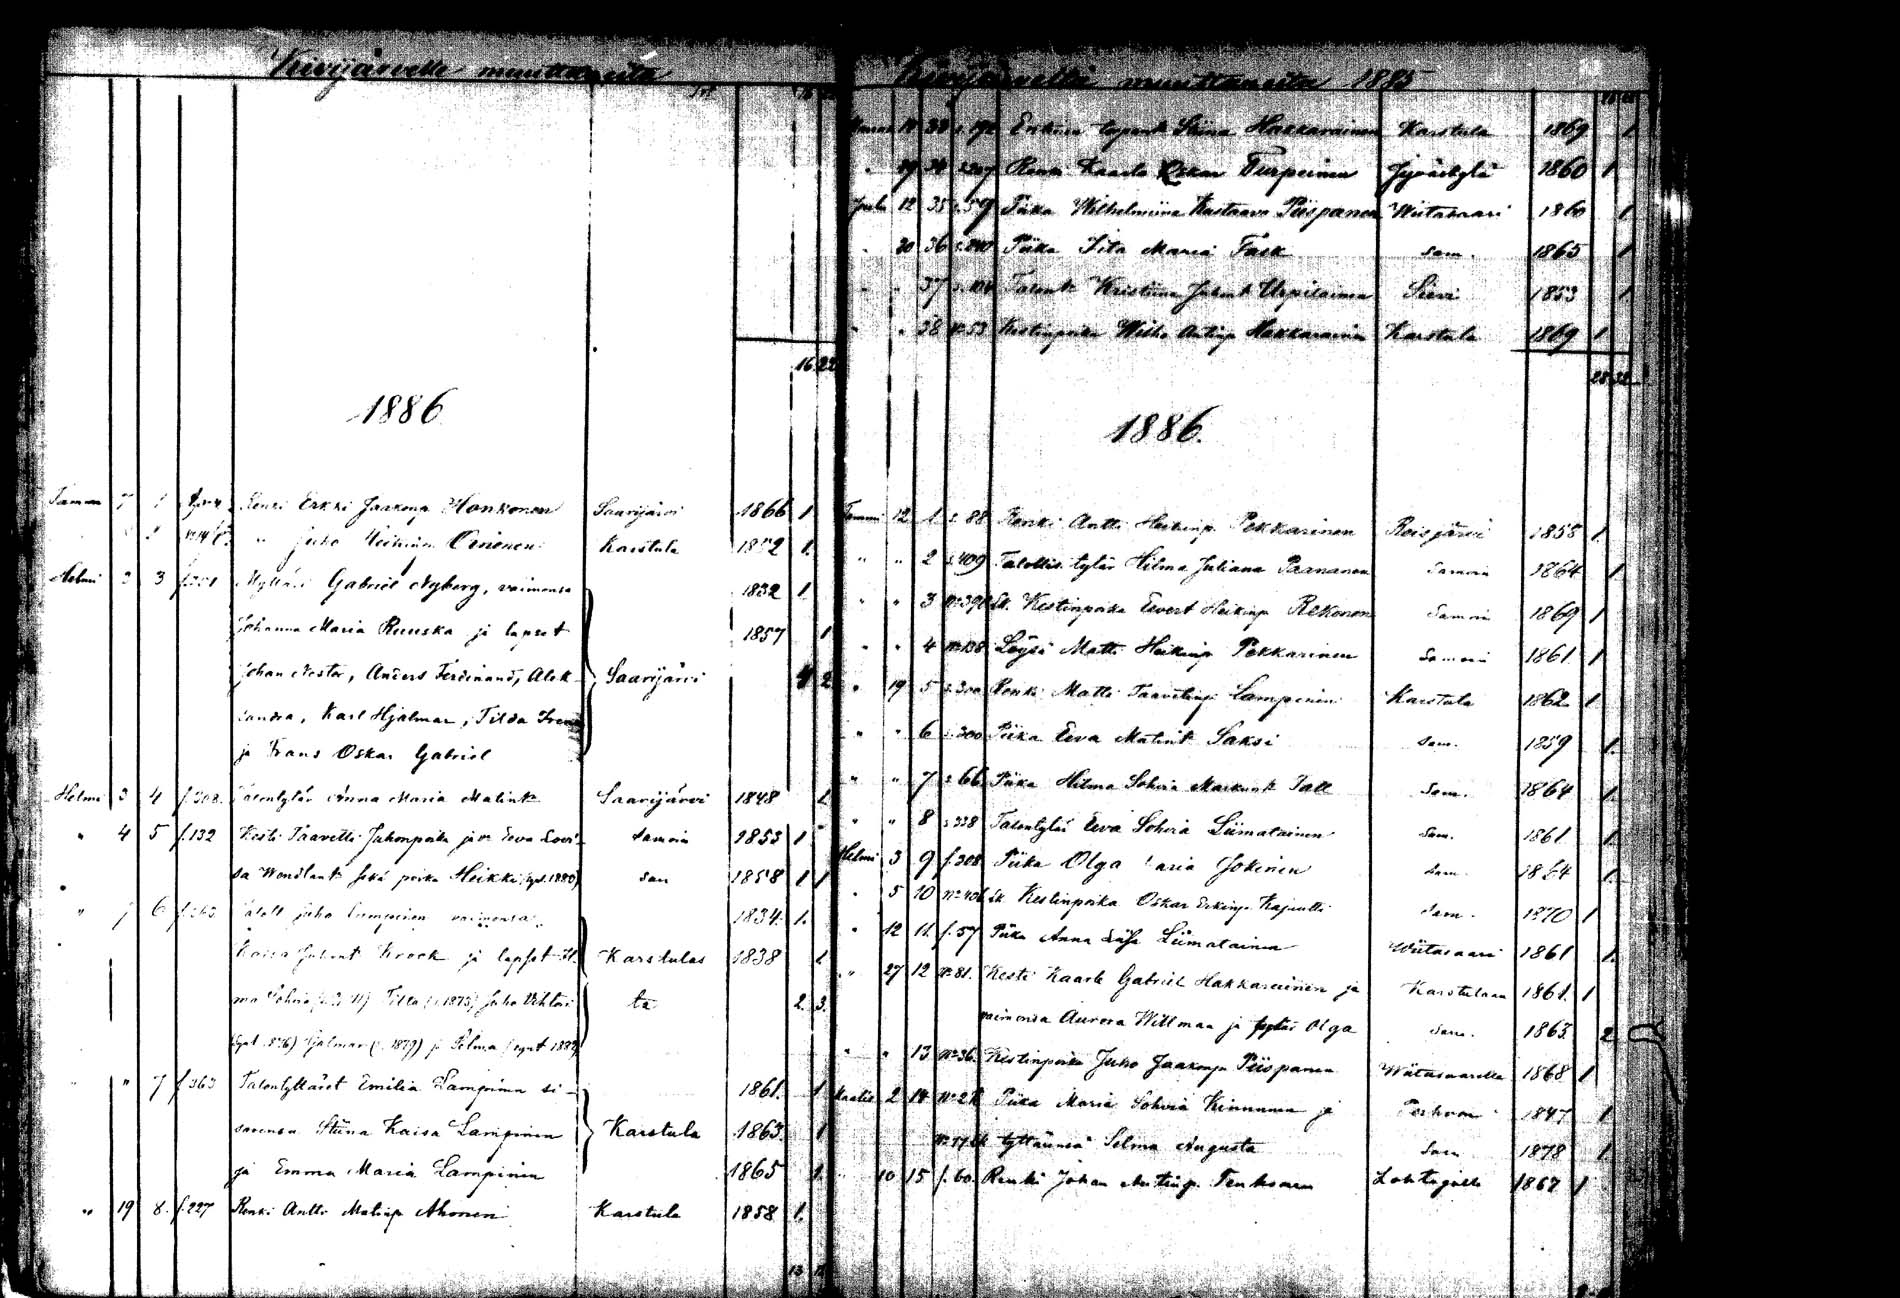 Kivijärvelle muuttaneita
16 22
1886
Tammi 7 1 Renki Erkki Jaakonp Honkonen Saarijärvi 1866 1
" Juho Oinonen Karstula 1852 1.
Helmi 3 3 f.301 Mylläri Gabriel Nyberg, vaimonsa 1832 1.
Johanna Maria Ruuska ja lapset 1857 1
Johan Nestor, Anders Ferdinand, Alek- Saarijärvi 4 2
sandra, Karl Hjalmar, Tilda Irene
ja Frans Oskar Gabriel
Helmi 3 4 f.308. Talontytär Anna Maria Matint Saarijärvi 1848 1
" 4 5 f.132 Kesti Taavetti Juhonpoika ja v. Eeva Lovi- samoin 1853 1
sa Wendlant sekä poika Heikki (synt. 1880) sam 1858 1 1
" 7 6 f.363 Taloll Juho Lampinen vaimonsa 1834. 1.
Kaisa Juhont Krook ja lapset Karstulas 1838 1
ma Sohvia Tilda (s. 1873) Juho Vihtori ta 2. 3.
Hjalmar (s. 1879) ja Selma
" 7 f.363 Talontyttäret Emilia Lampinen si- 1861. 1
sarensa Stiina Kaisa Lampinen Karstula 1863. 1
ja Emma Maria Lampinen 1865 1.
" 19 8. f.227 Renki Antti Matinp Ahonen Karstula 1858 1.
13
Kivijärveltä muuttaneita 1885
Stiina Hakkarainen Karstula 1869 1.
" 19 34 s.207 Renki Kaarlo Oskar Turpeinen Jyväskylä 1860 1.
Joulu 12 35 s.59 Piika Wilhelmiina Kustaava Piispanen Wiitasaari 1860 1.
" 30 36 Piika Iita Maria Fask sam. 1865 1
" " 37 Talont Kristiina Juhont Urpilainen Sievi 1853 1.
" " 38 No 53 Kestinpoika Antinp Hakkarainen Karstula 1869 1
28 32
1886.
Tammi 12 1 s.88 Renki Antti Heikinp Pekkarinen Reisjärvi 1858 1.
" " 2 s.409 Talollis tytär Hilma Juliana Paananen Samoin 1864 1.
" " 3 No 390 Lk. Kestinpoika Eevert Heikinp Rekonen Samoin 1869 1
" " 4 No 138 Loysi Matti Heikinp Pekkarinen Samoin 1861. 1
" 19 5 s.300 Renki Matti Taavetinp Lampinen Karstula 1862 1.
" " 6 s.300 Piika Eeva Matint Saksi Sam. 1859 1.
" " 7 s.66 Piika Hilma Sohvia Markunt Sam. 1864 1.
" " 8 s.338 Talontytär Eeva Sohvia Liimatainen Sam. 1861 1.
Helmi 3 9 f.308 Piika Olga Maria Jokinen Sam. 1864 1.
" 5 10 Lk. Kestinpoika Oskar Erkinp Kapultti Sam. 1870 1
" 12 11. f.57 Piika Anna Liisa Liimatainen Wiitasaari 1861 1.
" 27 12 No 81. Kesti Kaarle Gabriel Hakkarainen ja Karstulaan 1861. 1
vaimonsa Aurora Willman ja tytär Olga Sam. 1863 2
" " 13 No 36. Kestinpoika Juho Jaakonp Piispanen Wiitasaarelle 1868 1
Maalis 2 14 Piika Maria Sohvia Kinnunen ja Perhoon 1847 1
tyttärensä Selma Augusta Sam 1878 1.
" 10 15 f.60. Renki Johan Antinp. Lohtajalle 1867 1